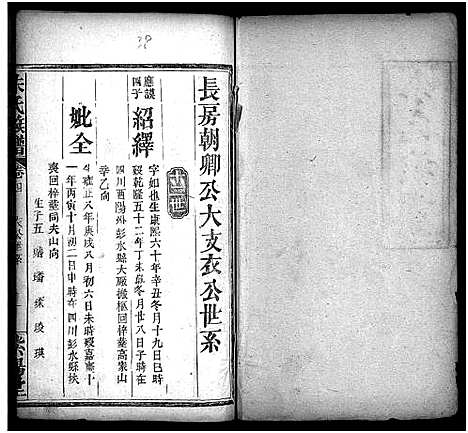 長房朝卿公大支衣公世系
十二世
應謨四子
紹繹
字如也生康熙六十年辛丑冬月十九日巳時
歿乾隆五十二年丁未冬月廿八日子時在
四川酉陽州彭水縣大廠搬柩回梓葬高寨山
辛乙向
妣全
生雍正八年庚戌八月初六日未時歿嘉慶十
一年丙寅十月初二日申時在四川彭水縣扶
喪回梓葬同夫山向
生子五
朱氏族譜
卷四